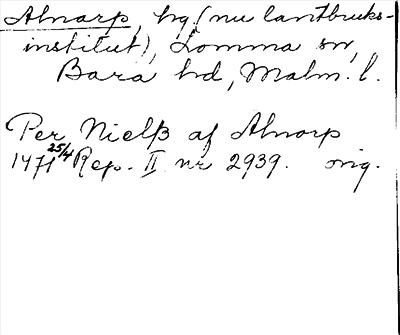 Alnarp, hg (nu lantbruks-
institut), Lomma sn,
Bara hd, Malm. l.
Per Nielß af Alnorp
1471 25/4 Rep. II nr 2939. orig.